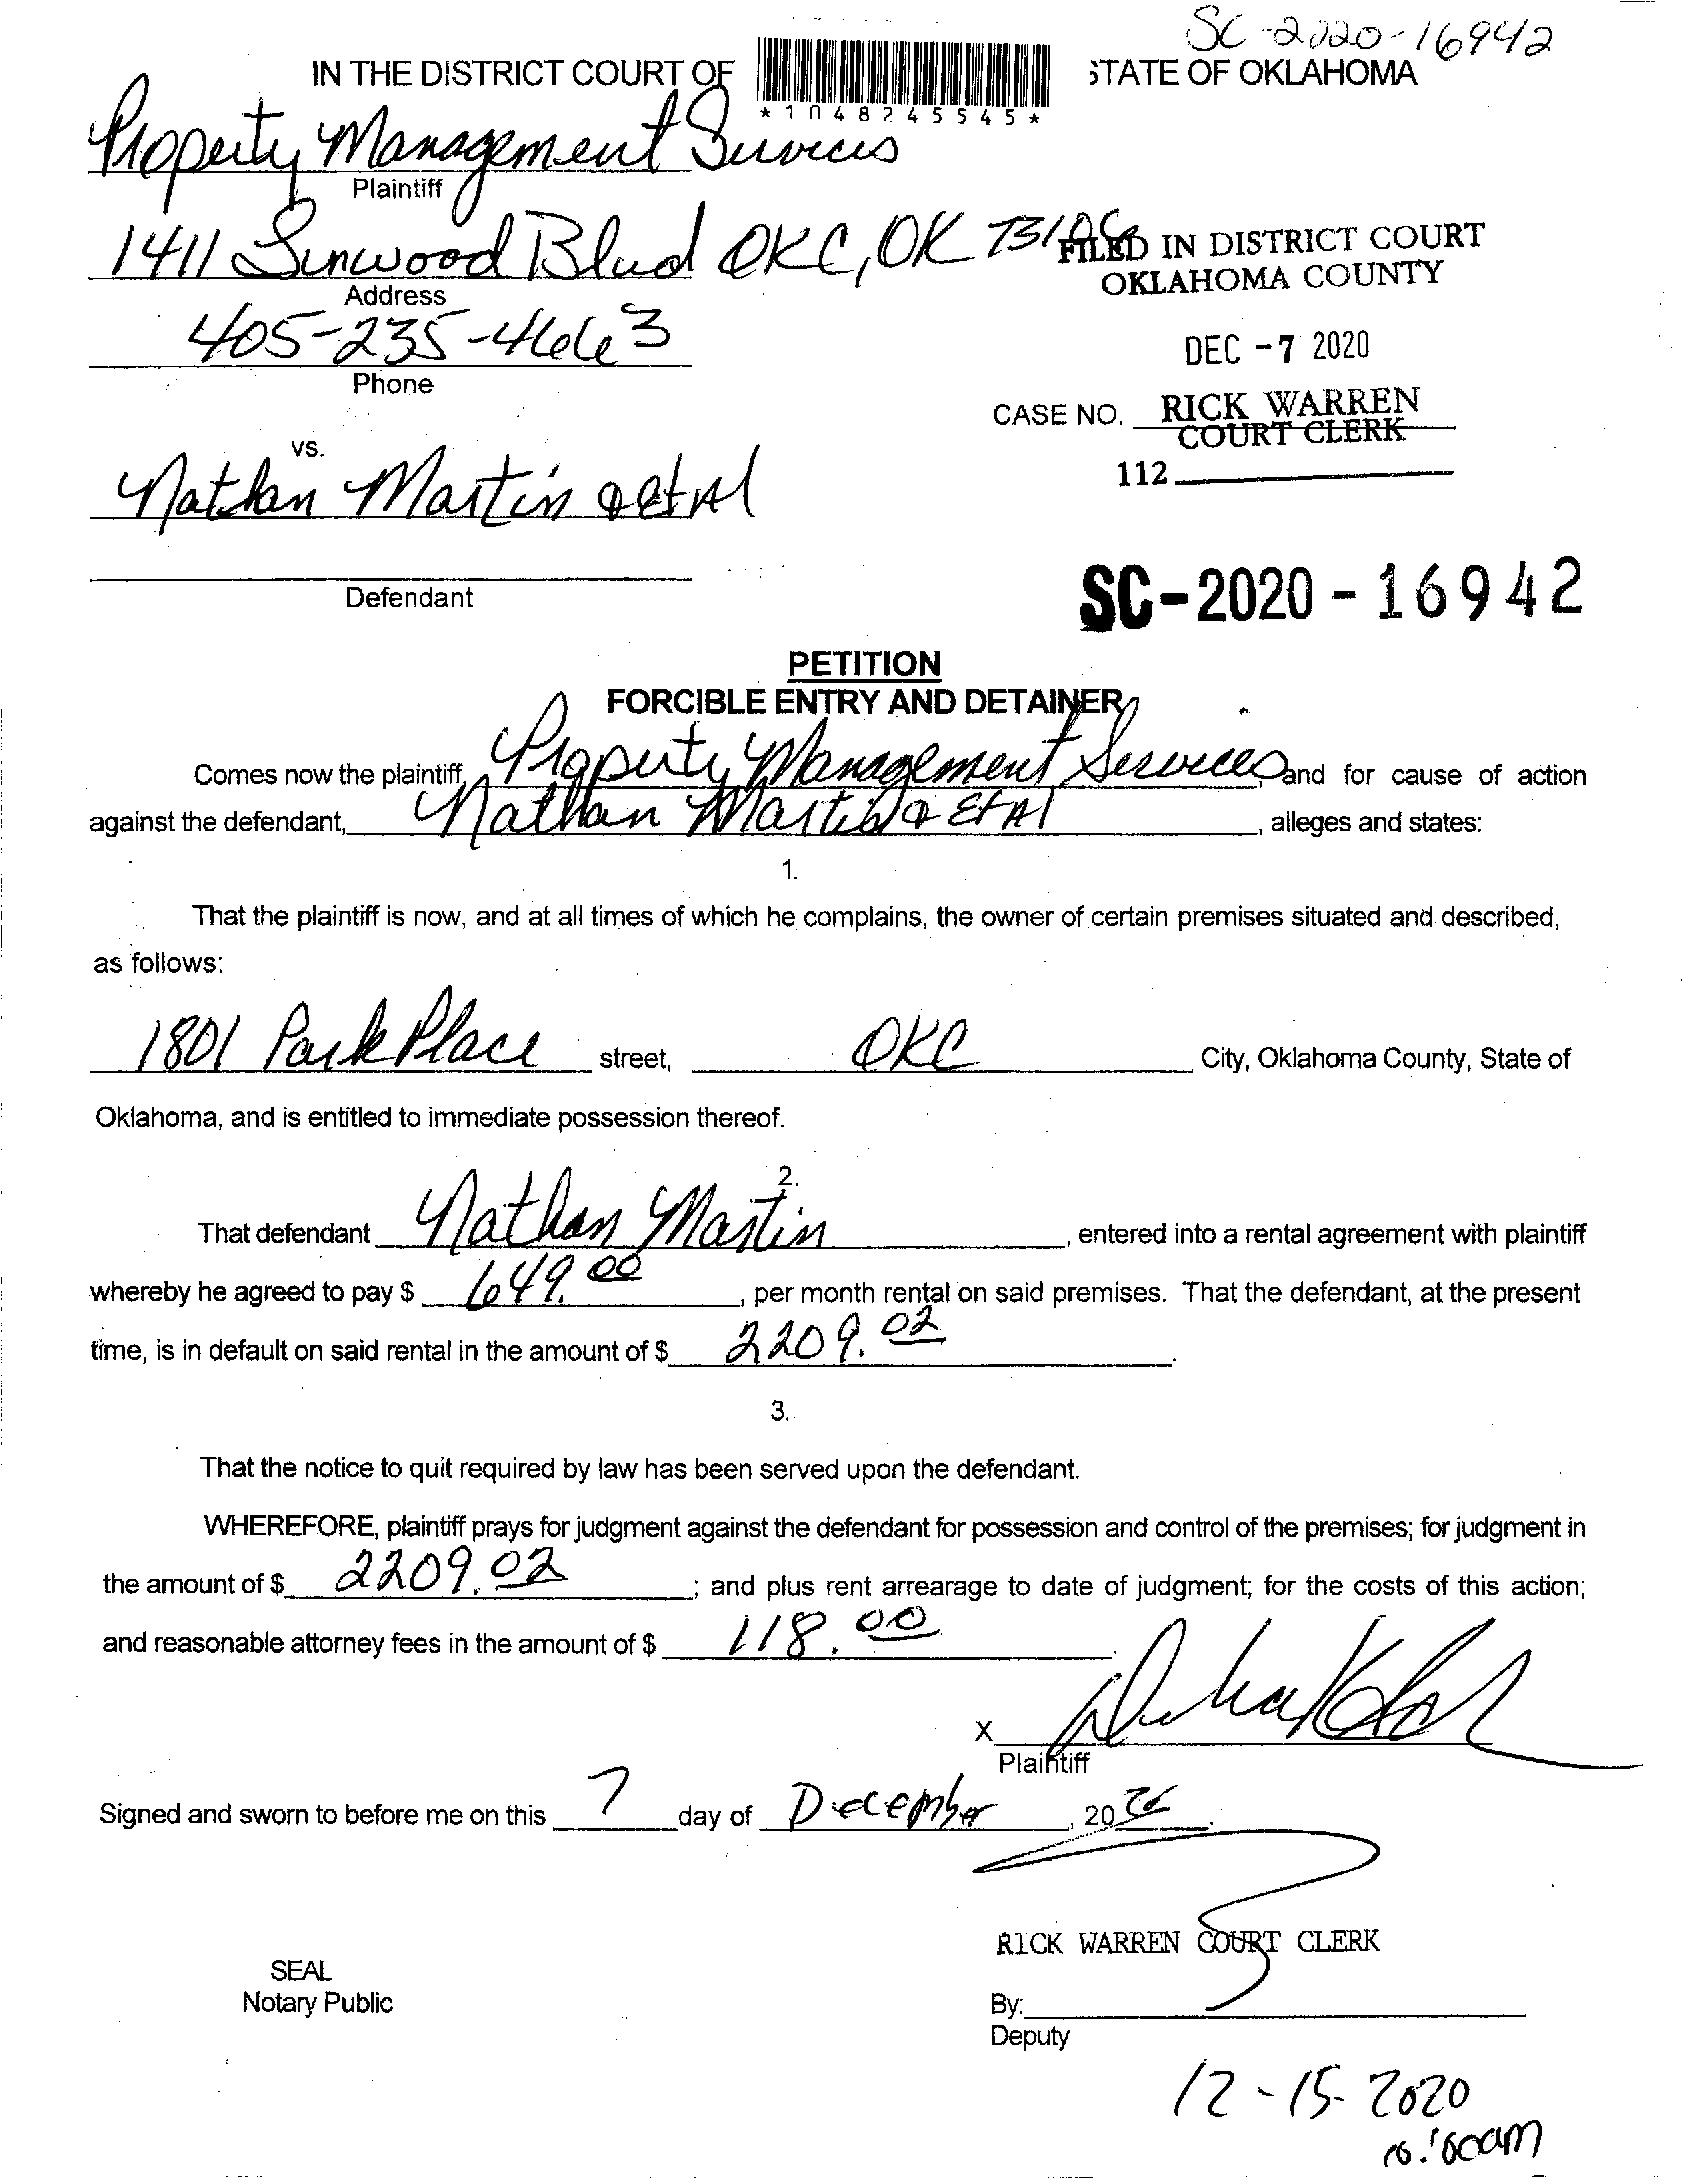 SC-2020-16942
IN THE DISTRICT COURT OF STATE OF OKLAHOMA
*1048245545*
Property Management Services
Plaintiff
1411 Linwood Blvd OKC, OK 73106
FILED IN DISTRICT COURT
OKLAHOMA COUNTY
Address
405-235-4663
DEC -7 2020
Phone
CASE NO. RICK WARREN
COURT CLERK
vs.
112
Nathan Martin & et Al
Defendant
SC-2020-16942
PETITION
FORCIBLE ENTRY AND DETAINER
Comes now the plaintiff, Property Management Services, and for cause of action
against the defendant, Nathan Martin & Et Al, alleges and states:
1.
That the plaintiff is now, and at all times of which he complains, the owner of certain premises situated and described,
as follows:
1801 Park Place street, OKC City, Oklahoma County, State of
Oklahoma, and is entitled to immediate possession thereof.
2.
That defendant Nathan Martin, entered into a rental agreement with plaintiff
whereby he agreed to pay $ 649.00, per month rental on said premises. That the defendant, at the present
time, is in default on said rental in the amount of $ 2209.02.
3.
That the notice to quit required by law has been served upon the defendant.
WHEREFORE, plaintiff prays for judgment against the defendant for possession and control of the premises; for judgment in
the amount of $ 2209.02; and plus rent arrearage to date of judgment; for the costs of this action;
and reasonable attorney fees in the amount of $ 118.00.
X
Plaintiff
Signed and sworn to before me on this 7 day of December, 2020.
RICK WARREN COURT CLERK
SEAL
Notary Public
By:
Deputy
12-15-2020